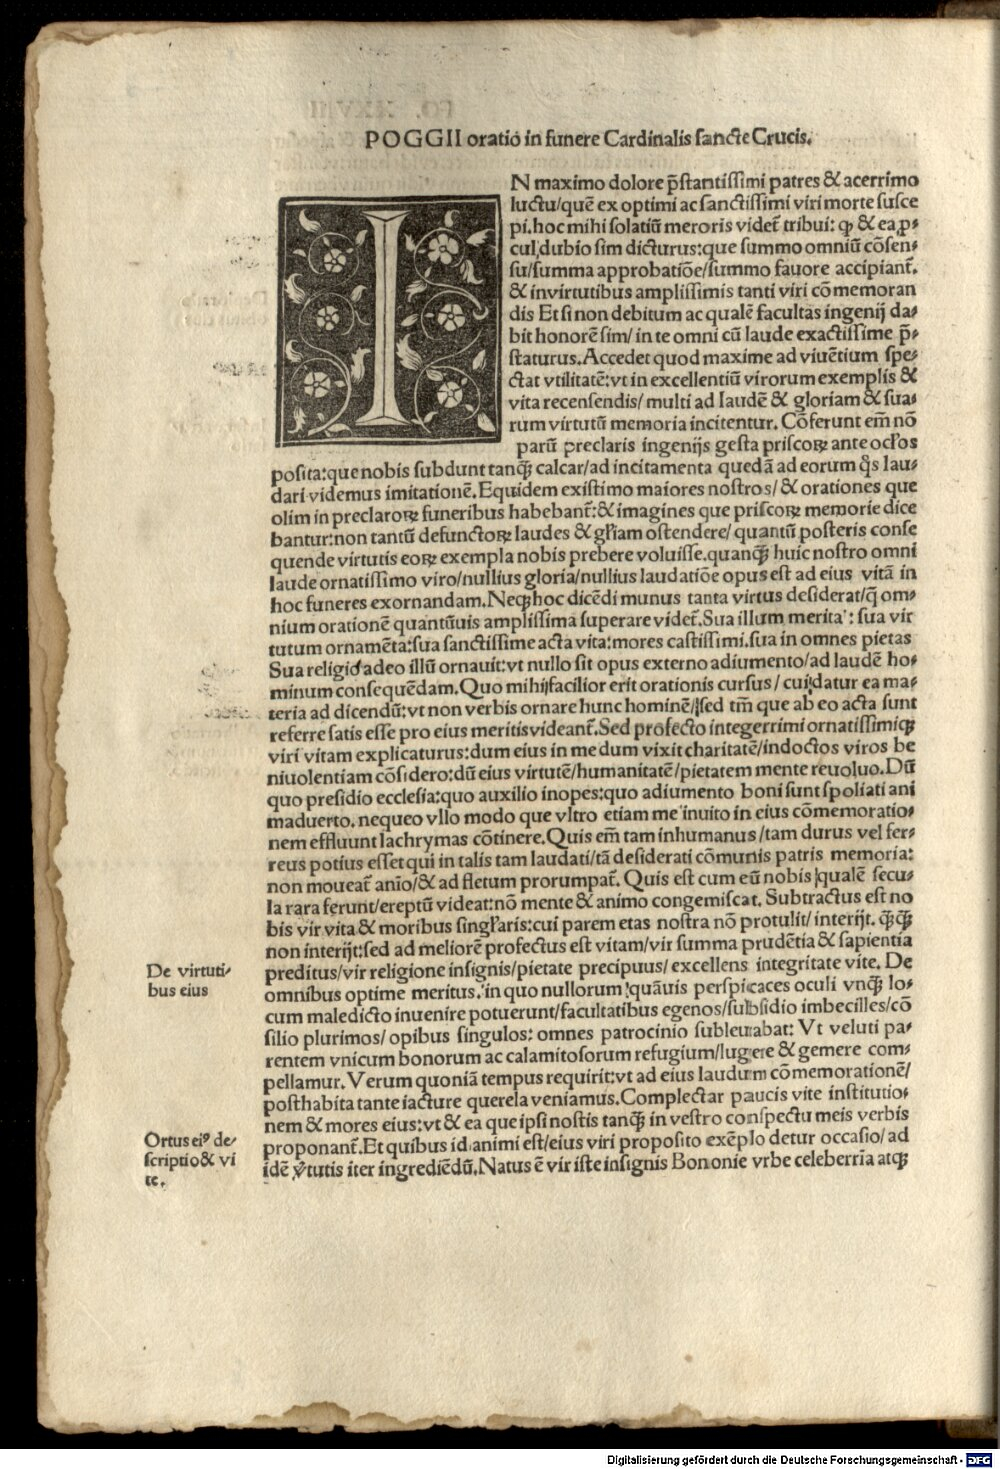 POGGII oratio in funere Cardinalis sancte Crucis.
IN maximo dolore p̄stantissimi patres & acerrimo
luctu/quē ex optimi ac sanctissimi viri morte susce
pi. hoc mihi solatiū meroris videt̄ tribui: ꝙ & ea ꝓ-
cul dubio sim dicturus: que summo omniū cōsen-
su/summa approbatiōe/summo fauore accipiant̄.
& invirtutibus amplissimis tanti viri cō memoran
dis Et si non debitum ac qualē facultas ingenij da-
bit honorē sim/ in te omni cū laude exactissime p̄-
staturus. Accedet quod maxime ad viuētium spe-
ctat vtilitatē: vt in excellentiū virorum exemplis &
vita recensendis/ multi ad laudē & gloriam & sua-
rum virtutū memoria incitentur. Cōferunt em̄ nō
parū preclaris ingenijs gesta priscoꝝ ante ocl'os
posita: que nobis subdunt tanꝗ̄ calcar/ad incitamenta quedā ad eorum q̄s lau-
dari videmus imitationē. Equidem existimo maiores nostros/ & orationes que
olim in preclaroꝝ funeribus habebant̄: & imagines que priscoꝝ memorie dice
bantur: non tantū defunctoꝝ laudes & gl'iam ostendere/ quantū posteris conse
quende virtutis eoꝝ exempla nobis prebere voluisse. quanꝗ̄ huic nostro omni
laude ornatissimo viro/nullius gloria/nullius laudatiōe opus est ad eius vitā in
hoc funeres exornandam. Neqꝫ hoc dicēdi munus tanta virtus desiderat/q̄ om-
nium orationē quantūuis amplissima superare videt̄. Sua illum merita: sua vir
tutum ornamēta: sua sanctissime acta vita: mores castissimi. sua in omnes pietas
Sua religio adeo illū ornauit: vt nullo sit opus externo adiumento/ad laudē ho-
minum consequēdam. Quo mihi facilior erit orationis cursus/ cui datur ea ma-
teria ad dicendū: vt non verbis ornare hunc hominē/ sed tm̄ que ab eo acta sunt
referre satis esse pro eius meritis videant̄. Sed profecto integerrimi ornatissimiqꝫ
viri vitam explicaturus: dum eius in me dum vixit charitatē/in doctos viros be
niuolentiam cōsidero: dū eius virtutē/humanitatē/pietatem mente reuoluo. Dū
quo presidio ecclesia: quo auxilio inopes: quo adiumento boni sunt spoliati ani
maduerto. nequeo vllo modo que vltro etiam me inuito in eius cōmemoratio-
nem effluunt lachrymas cōtinere. Quis em̄ tam inhumanus/tam durus vel fer-
reus potius esset qui in talis tam laudati/tā desiderati cōmunis patris memoria:
non moueat̄ anio/& ad fletum prorumpat̄. Quis est cum eū nobis qualē secu-
la rara ferunt/ereptū videat: nō mente & animo congemiscat. Subtractus est no
bis vir vita & moribus singl'aris: cui parem etas nostra nō protulit/ interijt. ꝗ̄ꝗ̄
non interijt: sed ad meliorē profectus est vitam/vir summa prudētia & sapientia
preditus/vir religione insignis/pietate precipuus/ excellens integritate vite. De
omnibus optime meritus. in quo nullorum quāuis perspicaces oculi vnꝗ̄ lo-
cum maledicto inuenire potuerunt/facultatibus egenos/subsidio imbecilles/cō
silio plurimos/ opibus singulos: omnes patrocinio subleuabat: Vt veluti pa-
rentem vnicum bonorum ac calamitosorum refugium/lugere & gemere com-
pellamur. Verum quoniā tempus requirit: vt ad eius laudum cōmemorationē/
posthabita tante iacture querela veniamus. Complectar paucis vite institutio-
nem & mores eius: vt & ea que ipsi nostis tanꝗ̄ in vestro conspectu meis verbis
proponant̄. Et quibus id animi est/eius viri proposito exēplo detur occasio/ ad
idē v̄tutis iter ingrediēdū. Natus ē vir iste insignis Bononie vrbe celeberria atqꝫ
De virtuti-
bus eius
Ortus eiꝰ de-
scriptio & vi
te.
Digitalisierung gefördert durch die Deutsche Forschungsgemeinschaft - DFG